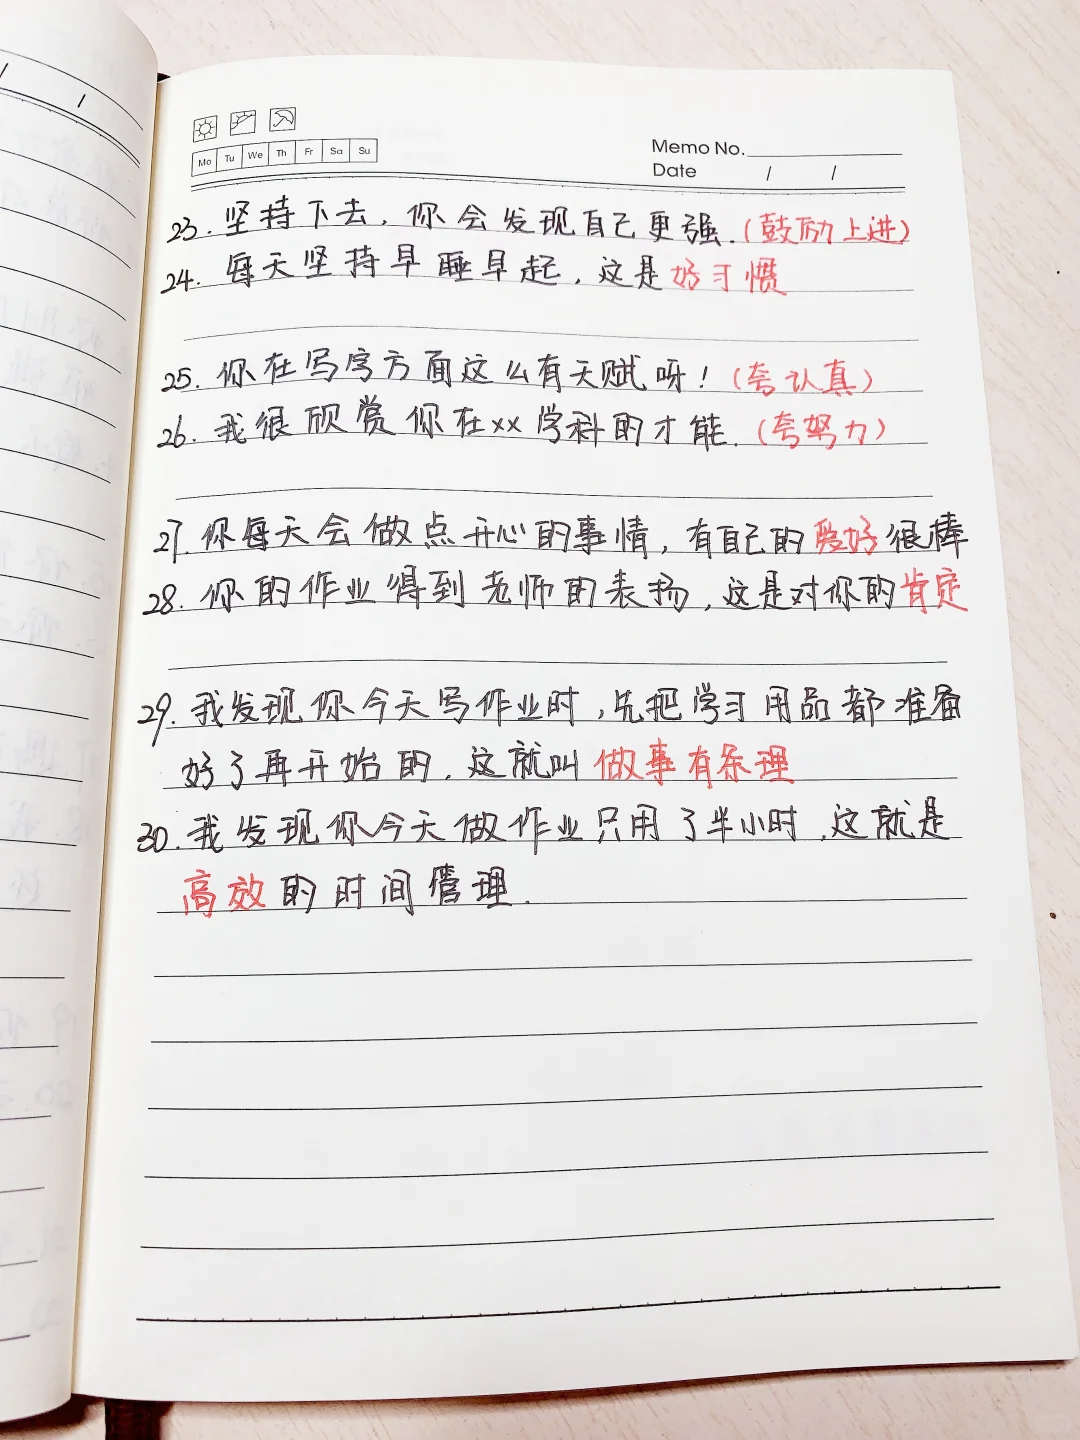 Mo Tu We Th Fr Sa Su
Memo No.
Date / /
23. 坚持下去，你会发现自己更强.(鼓励上进)
24. 每天坚持早睡早起，这是好习惯
25. 你在写字方面这么有天赋呀！(夸认真)
26. 我很欣赏你在xx学科的才能.(夸努力)
27. 你每天会做点开心的事情，有自己的爱好很棒
28. 你的作业得到老师的表扬，这是对你的肯定
29. 我发现你今天写作业时，先把学习用品都准备
好了再开始的，这就叫做事有条理
30. 我发现你今天做作业只用了半小时，这就是
高效的时间管理.